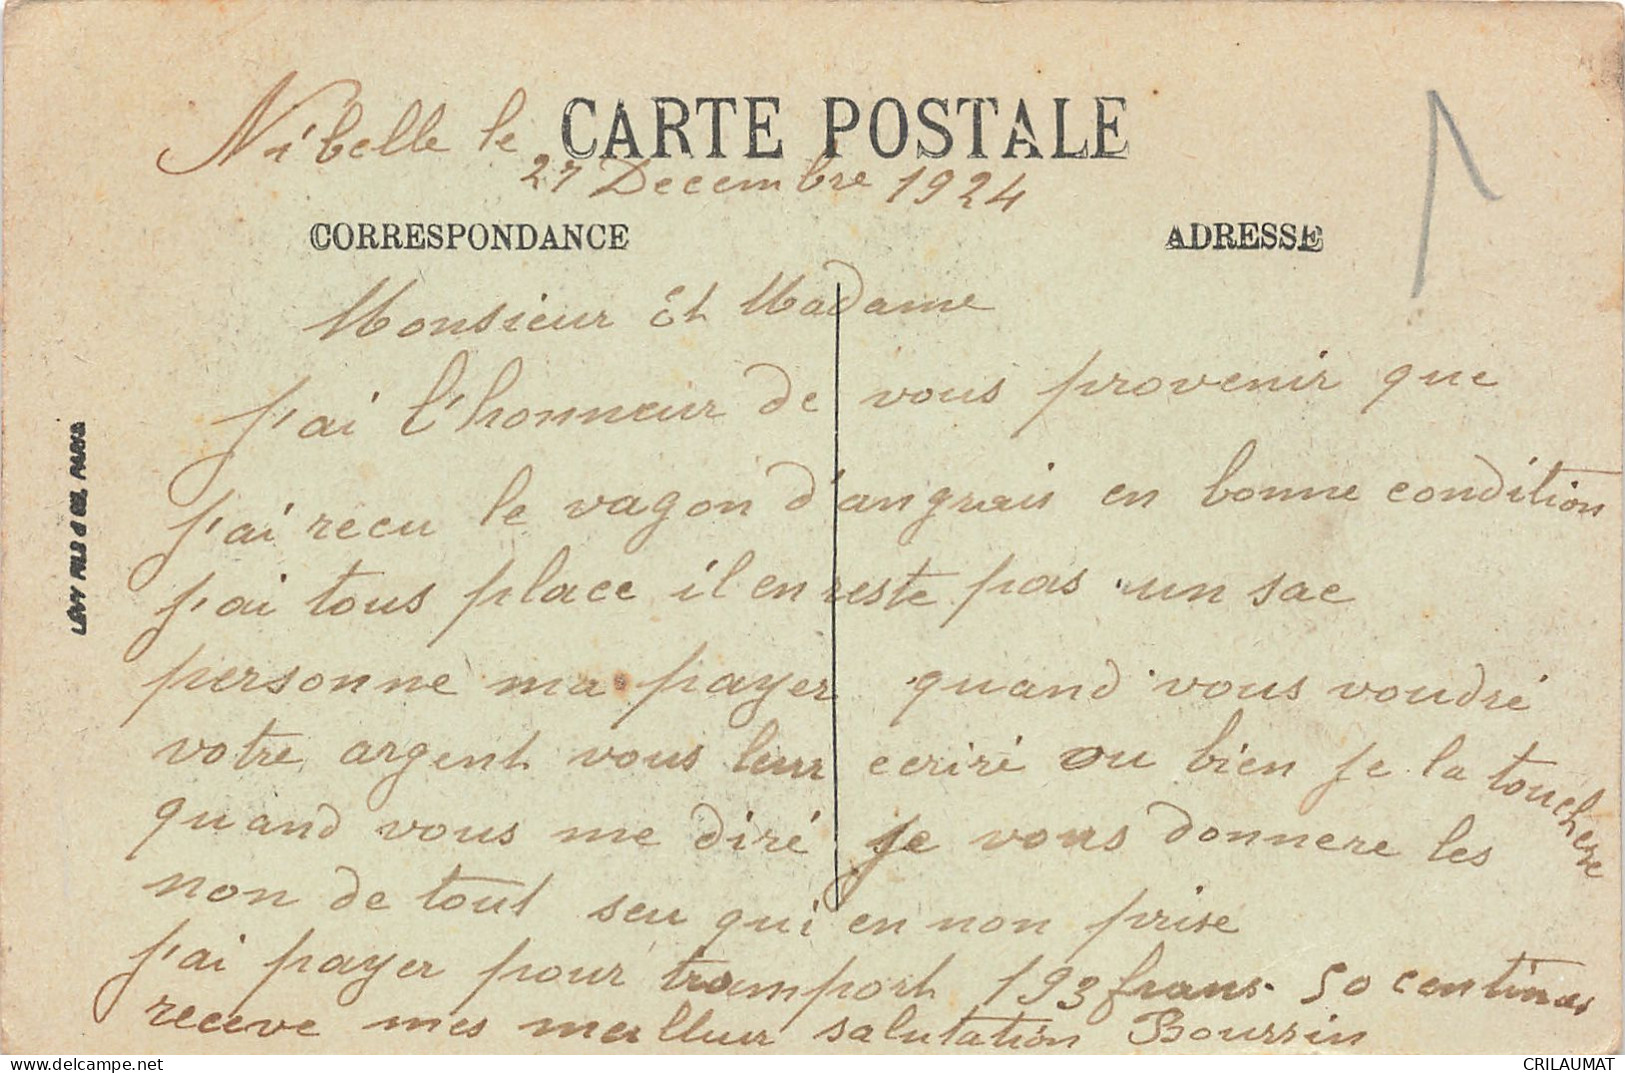 CARTE POSTALE
Nibelle le
27 Decembre 1924
CORRESPONDANCE
ADRESSE
Monsieur Et Madame
j'ai l'honneur de vous provenir que
j'ai recu le vagon d'angrais en bonne condition
j'ai tous place il en reste pas un sac
personne ma payer quand vous voudré
votre argent vous leur ecriré ou bien je la touchere
quand vous me diré je vous donnere les
non de tout seu qui en non prise
j'ai payer pour tramport 193 frans 50 centimes
receve mes meilleur salutation Boursin
LÉVY FILS & CIE, PARIS
CRILAUMAT